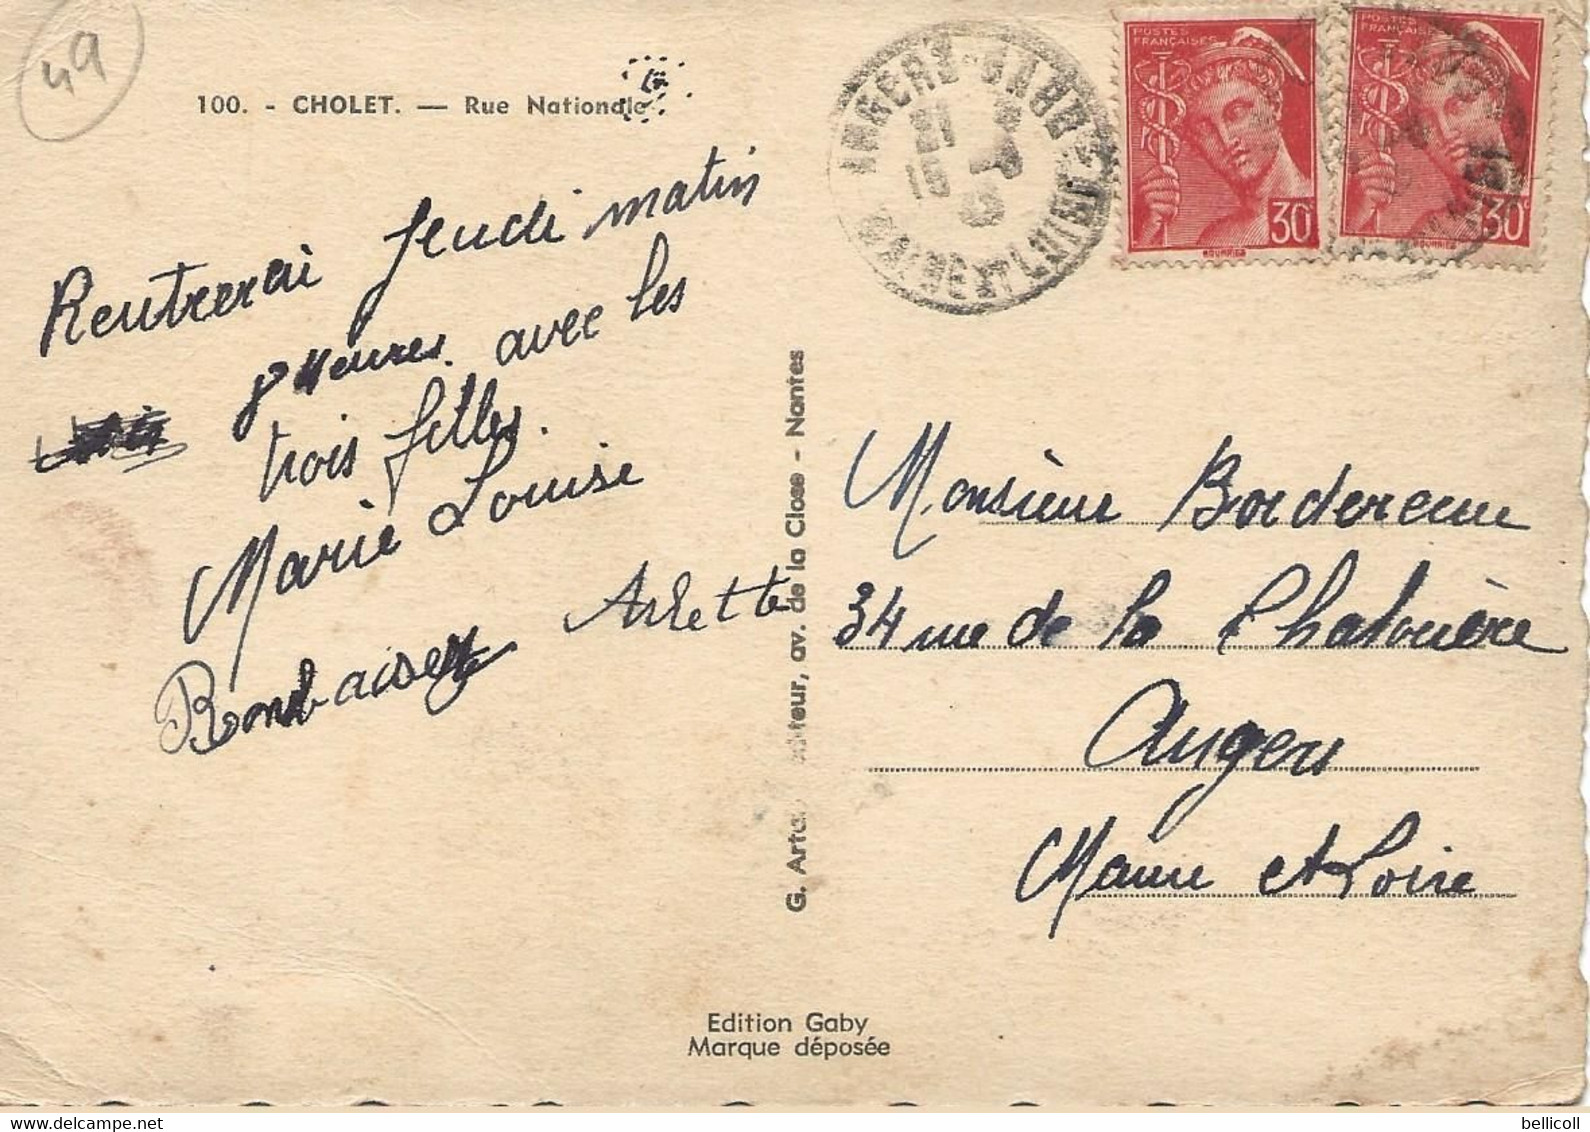 49
100. - CHOLET. — Rue Nationale
Rentrerai Jeudi matin
8 Heures. avec les
trois filles.
Marie Louise
Arlette
POSTES
FRANÇAISES
30c
POSTES
FRANÇAISES
30c
ANGERS-GARE
MAINE ET LOIRE
G. Arta
teur, av. de la Close - Nantes
Monsieur Bordereau
34 rue de la Chalouère
Angers
Maine et Loire
Edition Gaby
Marque déposée
www.delcampe.net
bellicoll